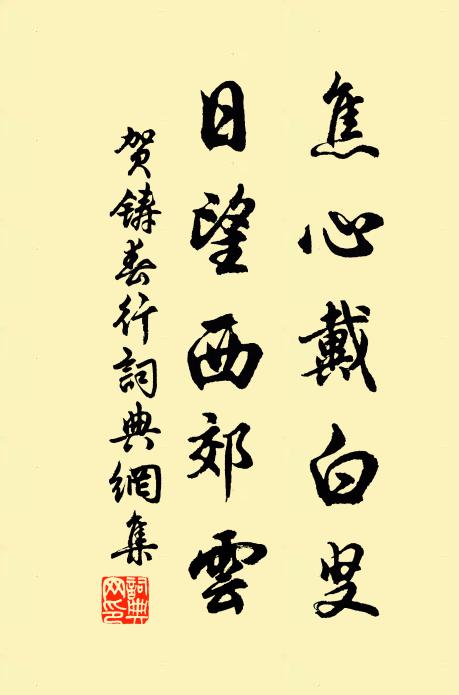 焦心戴白叟
日望西郊雲
賀鑄春行詞典網集
詞典網印